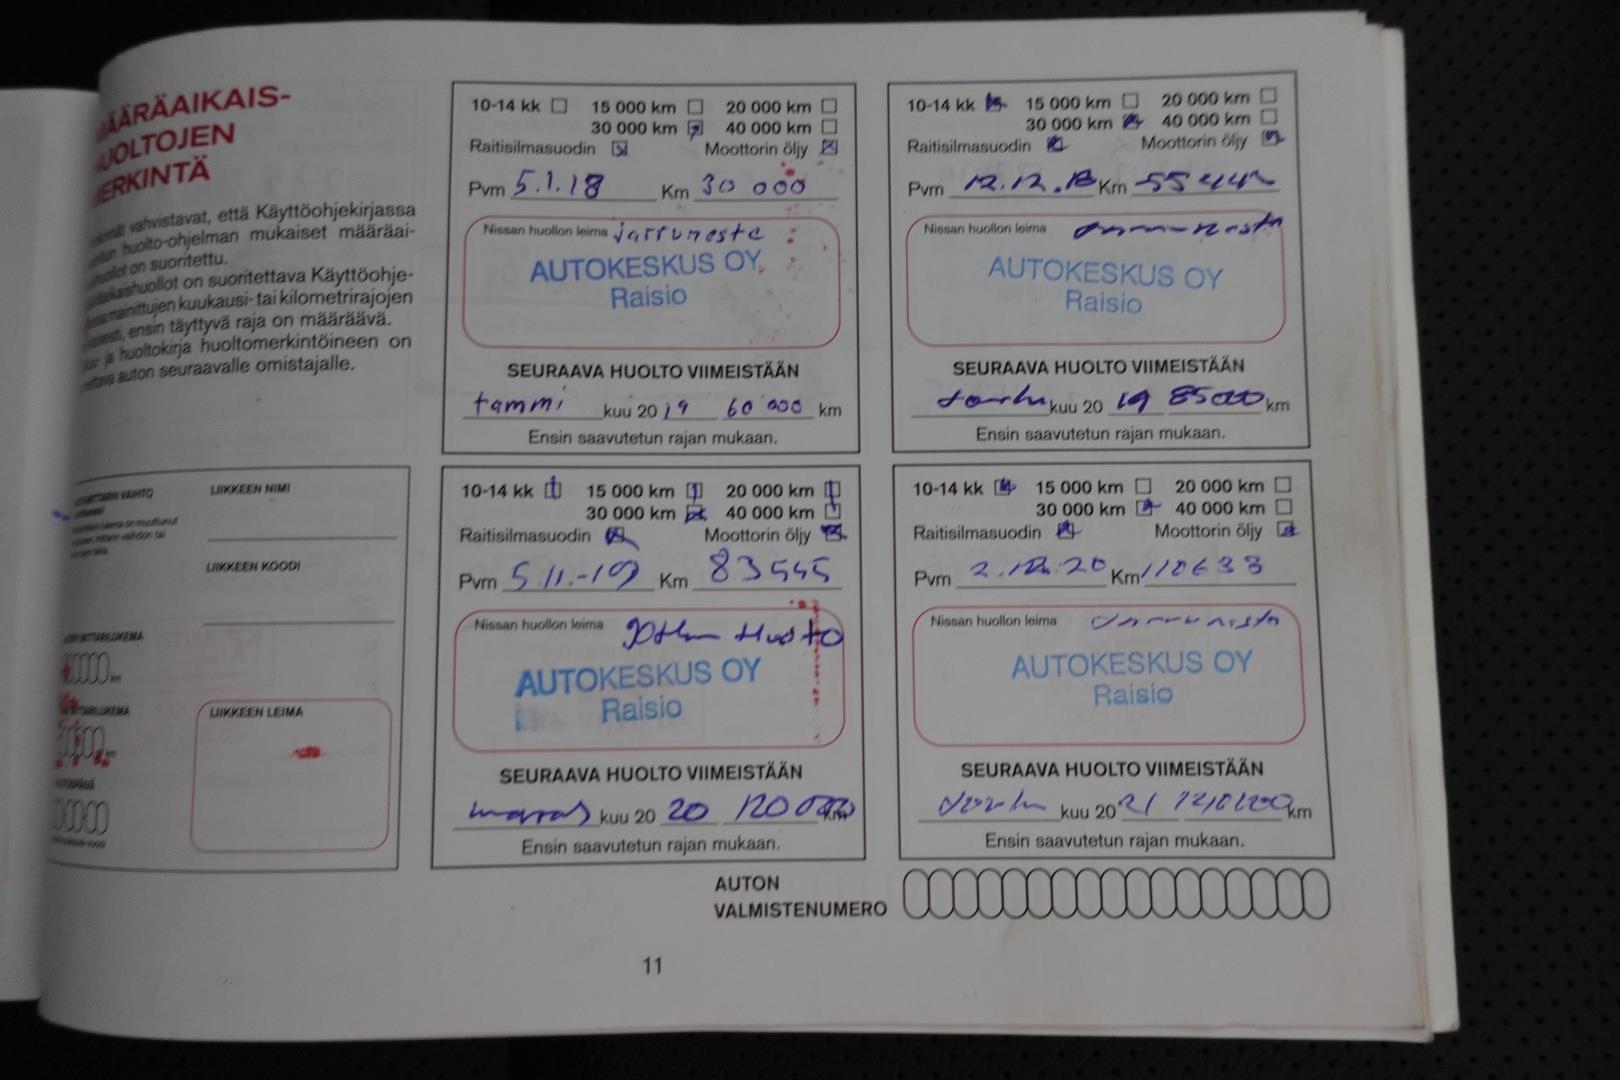 MÄÄRÄAIKAIS-
HUOLTOJEN
MERKINTÄ
vahvistavat, että Käyttöohjekirjassa
huolto-ohjelman mukaiset määräai-
on suoritettu.
on suoritettava Käyttöohje-
mainittujen kuukausi- tai kilometrirajojen
ensin täyttyvä raja on määräävä.
ja huoltokirja huoltomerkintöineen on
auton seuraavalle omistajalle.
10-14 kk 15 000 km 20 000 km
30 000 km 40 000 km
Raitisilmasuodin Moottorin öljy
Pvm 5.1.18 Km 30 000
Nissan huollon leima jarruneste
AUTOKESKUS OY
Raisio
SEURAAVA HUOLTO VIIMEISTÄÄN
tammi kuu 2019 60 000 km
Ensin saavutetun rajan mukaan.
10-14 kk 15 000 km 20 000 km
30 000 km 40 000 km
Raitisilmasuodin Moottorin öljy
Pvm 12.12.18 Km 55442
Nissan huollon leima
AUTOKESKUS OY
Raisio
SEURAAVA HUOLTO VIIMEISTÄÄN
joulu kuu 2019 85000 km
Ensin saavutetun rajan mukaan.
VAIHTO
LIIKKEEN NIMI
LIIKKEEN KOODI
MITTARILUKEMA
km
MITTARILUKEMA
km
LIIKKEEN LEIMA
10-14 kk 15 000 km 20 000 km
30 000 km 40 000 km
Raitisilmasuodin Moottorin öljy
Pvm 5.11.-19 Km 83545
Nissan huollon leima Huolto
AUTOKESKUS OY
Raisio
SEURAAVA HUOLTO VIIMEISTÄÄN
marras kuu 2020 120 000 km
Ensin saavutetun rajan mukaan.
10-14 kk 15 000 km 20 000 km
30 000 km 40 000 km
Raitisilmasuodin Moottorin öljy
Pvm 2.12.20 Km 110633
Nissan huollon leima jarruneste
AUTOKESKUS OY
Raisio
SEURAAVA HUOLTO VIIMEISTÄÄN
joulu kuu 2021 140000 km
Ensin saavutetun rajan mukaan.
AUTON
VALMISTENUMERO
11